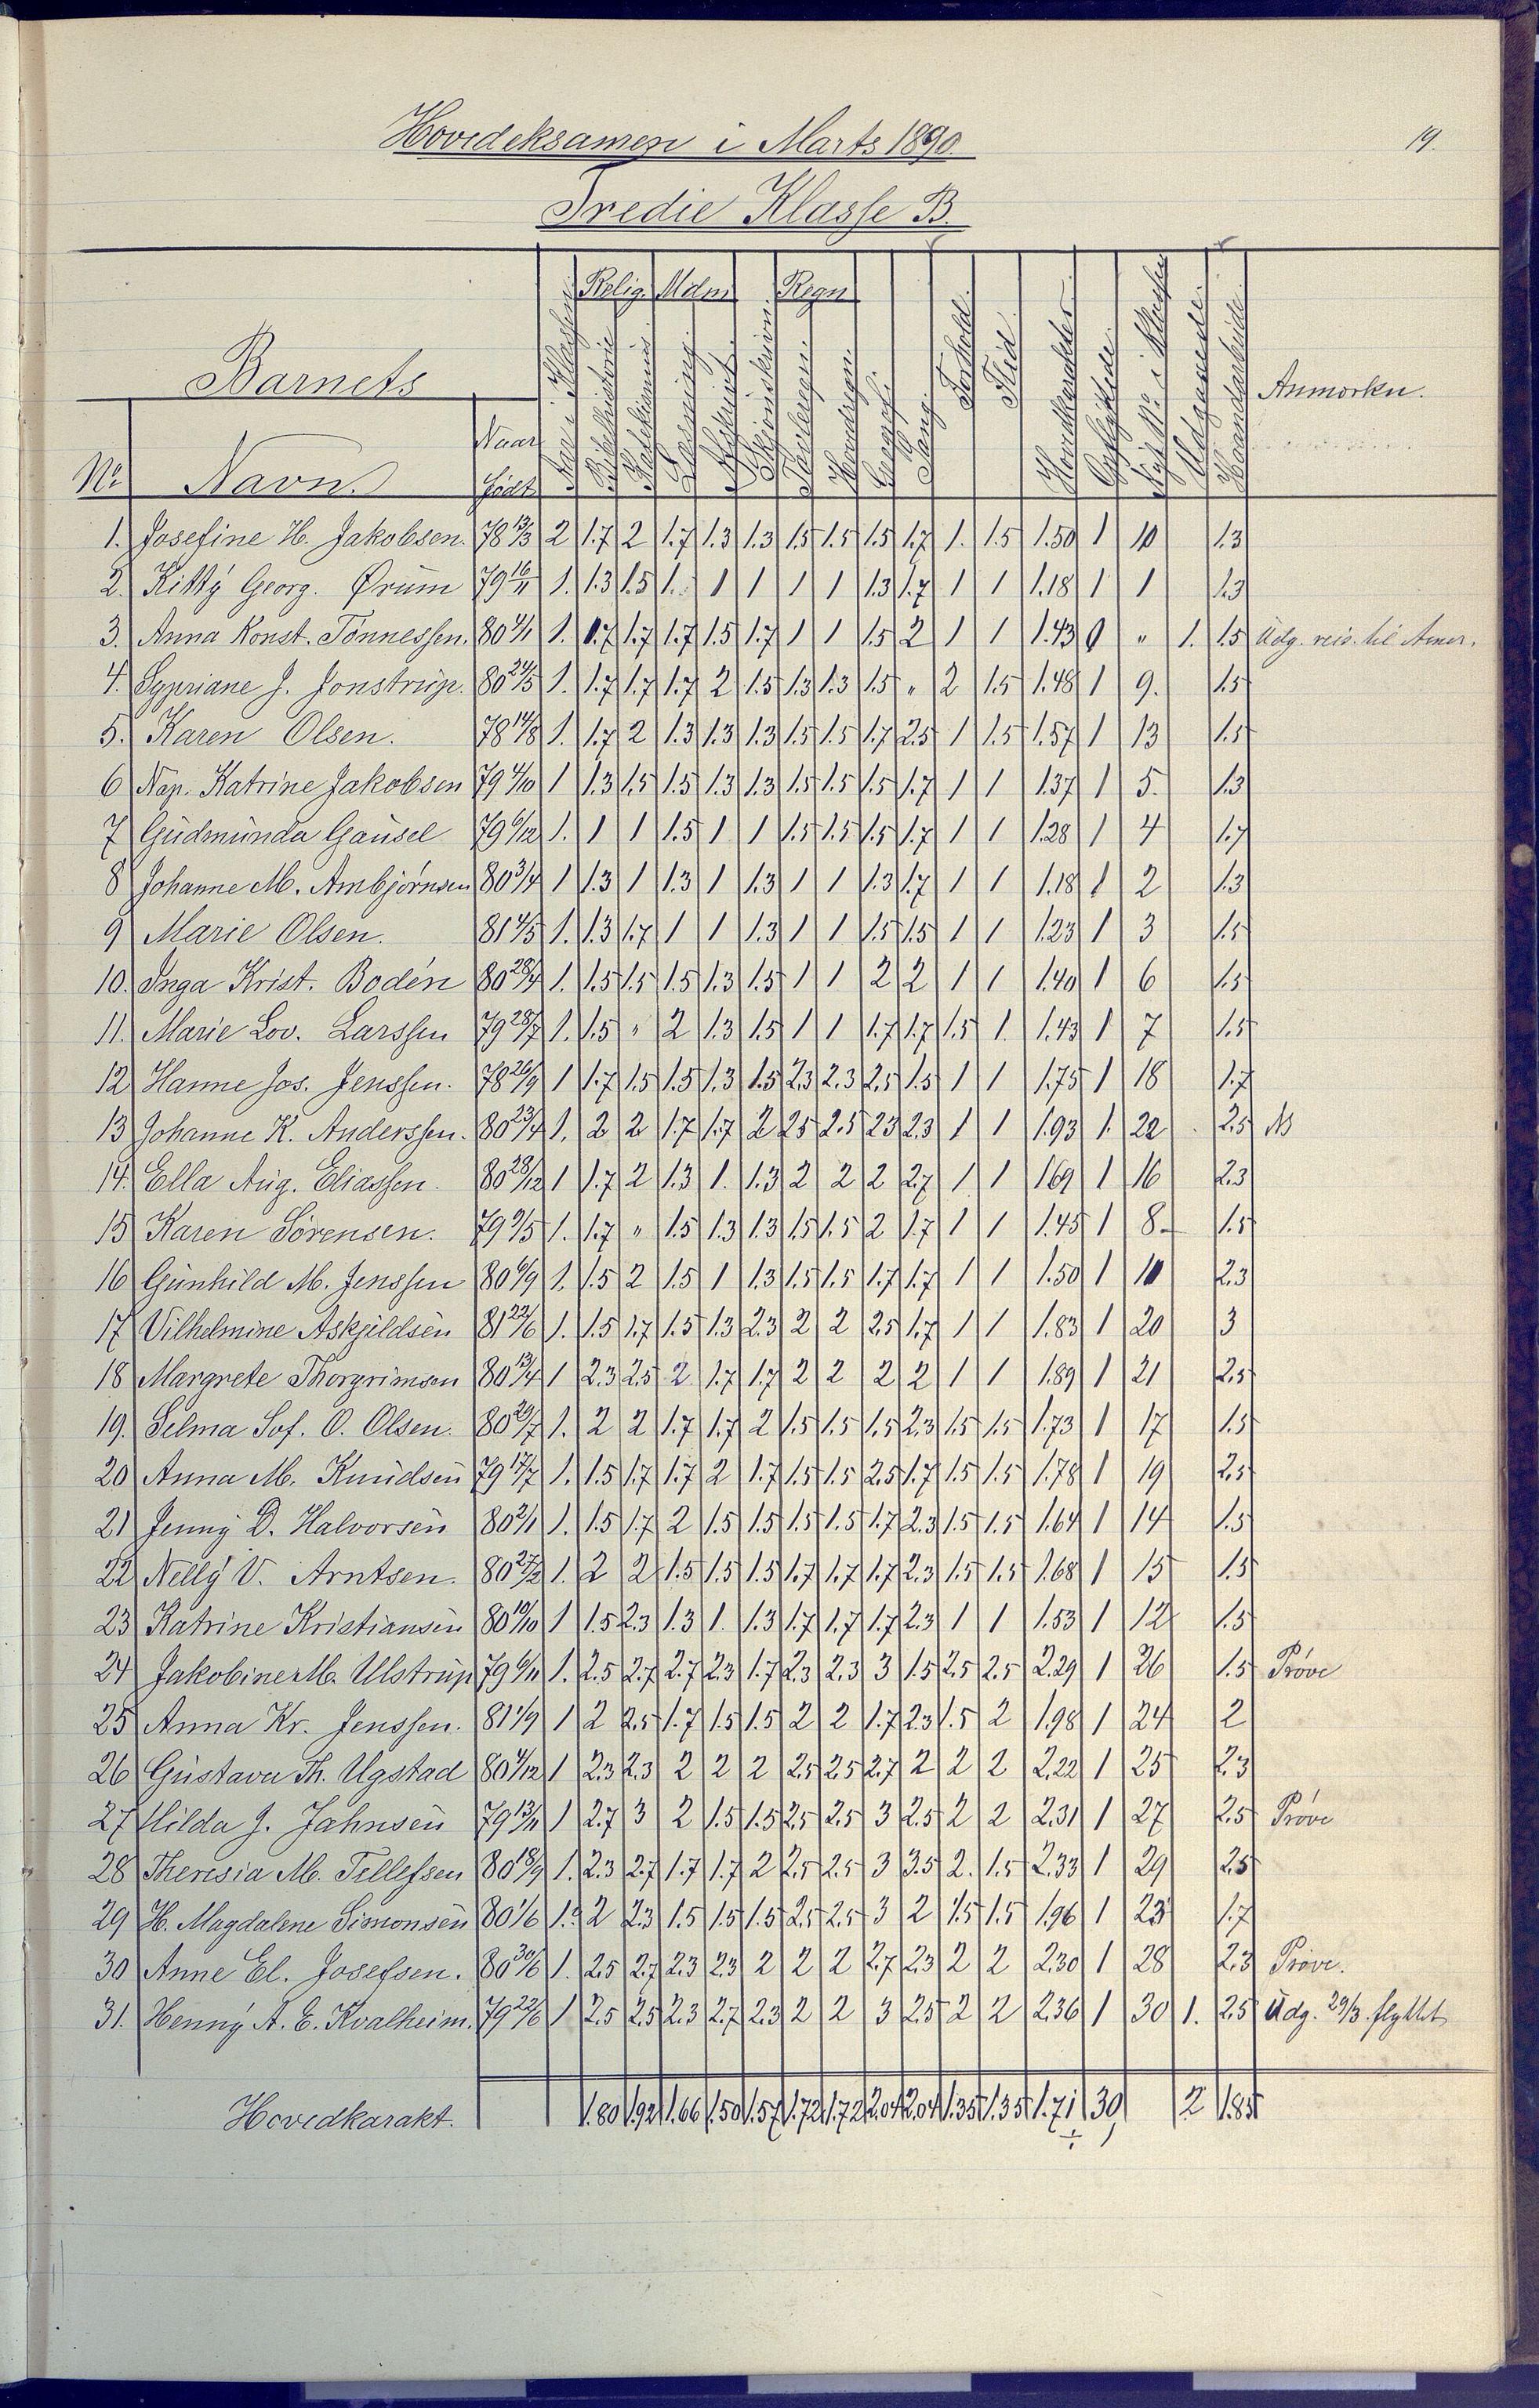 Hovedeksamen i Marts 1890. 19.
Tredie Klasse B.
Relig. Mdm. Regn.
Barnets
Aar i Klassen. Bibelhistorie Katekismus. Læsning. Afskrivt. Skjönskrivn. Tavleregn. Hovedregn. Geograf. Sang. Forhold. Flid. Hovedkarakter. Opflyttede. Nyt No. i Klassen Udgaaede. Haandarbeide.
Anmærkn.
No. Navn. Naar födt
1. Josefine H. Jakobsen. 78 13/3 2 1.7 2 1.7 1.3 1.3 1.5 1.5 1.5 1.7 1. 1.5 1.50 1 10 1.3
2. Kitty Georg. Ørum 79 16/11 1. 1.3 1.5 1. 1 1 1 1 1.3 1.7 1 1 1.18 1 1 1.3
3. Anna Konst. Tönnessen. 80 4/1 1. 1.7 1.7 1.7 1.5 1.7 1 1 1.5 2 1 1 1.43 0 " 1. 1.5 Udg. reis. til Amer.
4. Sypriane J. Jonstrup. 80 24/5 1. 1.7 1.7 1.7 2 1.5 1.3 1.3 1.5 " 2 1.5 1.48 1 9. 1.5
5. Karen Olsen. 78 14/8 1. 1.7 2 1.3 1.3 1.3 1.5 1.5 1.7 2.5 1 1.5 1.57 1 13 1.5
6 Nap. Katrine Jakobsen 79 4/10 1 1.3 1.5 1.5 1.3 1.3 1.5 1.5 1.5 1.7 1 1 1.37 1 5. 1.3
7 Gudmunda Gausel 79 6/12 1. 1 1 1.5 1 1 1.5 1.5 1.5 1.7 1 1 1.28 1 4 1.7
8 Johanne M. Ambjörnsen 80 3/4 1 1.3 1 1.3 1 1.3 1 1 1.3 1.7 1 1 1.18 1 2 1.3
9 Marie Olsen. 81 4/5 1. 1.3 1.7 1 1 1.3 1 1 1.5 1.5 1 1 1.23 1 3 1.5
10. Inga Krist. Bodén 80 28/4 1. 1.5 1.5 1.5 1.3 1.5 1 1 2 2 1 1 1.40 1 6 1.5
11. Marie Lov. Larssen 79 28/7 1. 1.5 " 2 1.3 1.5 1 1 1.7 1.7 1.5 1. 1.43 1 7 1.5
12 Hanne Jos. Jenssen. 78 26/9 1 1.7 1.5 1.5 1.3 1.5 2.3 2.3 2.5 1.5 1 1 1.75 1 18 1.7
13 Johanne K. Anderssen. 80 23/4 1. 2 2 1.7 1.7 2 2.5 2.5 2.3 2.3 1 1 1.93 1. 22 2.5
14. Ella Aug. Eliassen. 80 28/12 1 1.7 2 1.3 1. 1.3 2 2 2 2.7 1 1 1.69 1 16 2.3
15 Karen Sörensen. 79 9/5 1. 1.7 " 1.5 1.3 1.3 1.5 1.5 2 1.7 1 1 1.45 1 8 1.5
16 Gunhild M. Jenssen 80 6/9 1. 1.5 2 1.5 1 1.3 1.5 1.5 1.7 1.7 1 1 1.50 1 10 2.3
17 Vilhelmine Askjeldsen 81 22/6 1. 1.5 1.7 1.5 1.3 2.3 2 2 2.5 1.7 1 1 1.83 1 20 3
18 Margrete Thorgrimsen 80 13/4 1 2.3 2.5 2 1.7 1.7 2 2 2 2 1 1 1.89 1 21 2.5
19. Selma Sof. O. Olsen. 80 29/7 1. 2 2 1.7 1.7 2 1.5 1.5 1.5 2.3 1.5 1.5 1.73 1 17 1.5
20 Anna M. Knudsen 79 17/7 1. 1.5 1.7 1.7 2 1.7 1.5 1.5 2.5 1.7 1.5 1.5 1.78 1 19 2.5
21 Jenny D. Halvorsen 80 2/1 1. 1.5 1.7 2 1.5 1.5 1.5 1.5 1.7 2.3 1.5 1.5 1.64 1 14 1.5
22 Nelly V. Arntsen. 80 27/2 1. 2 2 1.5 1.5 1.5 1.7 1.7 1.7 2.3 1.5 1.5 1.68 1 15 1.5
23 Katrine Kristiansen 80 10/10 1 1.5 2.3 1.3 1. 1.3 1.7 1.7 1.7 2.3 1 1 1.53 1 12 1.5
24 Jakobine M. Ulstrup 79 6/11 1. 2.5 2.7 2.7 2.3 1.7 2.3 2.3 3 1.5 2.5 2.5 2.29 1 26 1.5 Pröve
25 Anna Kr. Jenssen. 81 1/9 1 2 2.5 1.7 1.5 1.5 2 2 1.7 2.3 1.5 2 1.98 1 24 2
26 Gustava Th. Ugstad 80 4/12 1 2.3 2.3 2 2 2 2.5 2.5 2.7 2 2 2 2.22 1 25 2.3
27 Hilda J. Jahnsen 79 13/11 1 2.7 3 2 1.5 1.5 2.5 2.5 3 2.5 2 2 2.31 1 27 2.5 Pröve
28 Theresia M. Tellefsen 80 18/9 1. 2.3 2.7 1.7 1.7 2 2.5 2.5 3 3.5 2. 1.5 2.33 1 29 2.5
29 H. Magdalene Simonsen 80 1/6 1. 2 2.3 1.5 1.5 1.5 2.5 2.5 3 2 1.5 1.5 1.96 1 23 1.7
30 Anne El. Josefsen. 80 30/6 1. 2.5 2.7 2.3 2.3 2 2 2 2.7 2.3 2 2 2.30 1 28 2.3 Pröve.
31. Henny A. E. Kvalheim. 79 22/6 1 2.5 2.5 2.3 2.7 2.3 2 2 3 2.5 2 2 2.36 1 30 1. 2.5 Udg. 29/3 flyttet
Hovedkarakt. 1.80 1.92 1.66 1.50 1.57 1.72 1.72 2.04 2.04 1.35 1.35 1.71 30 2 1.85